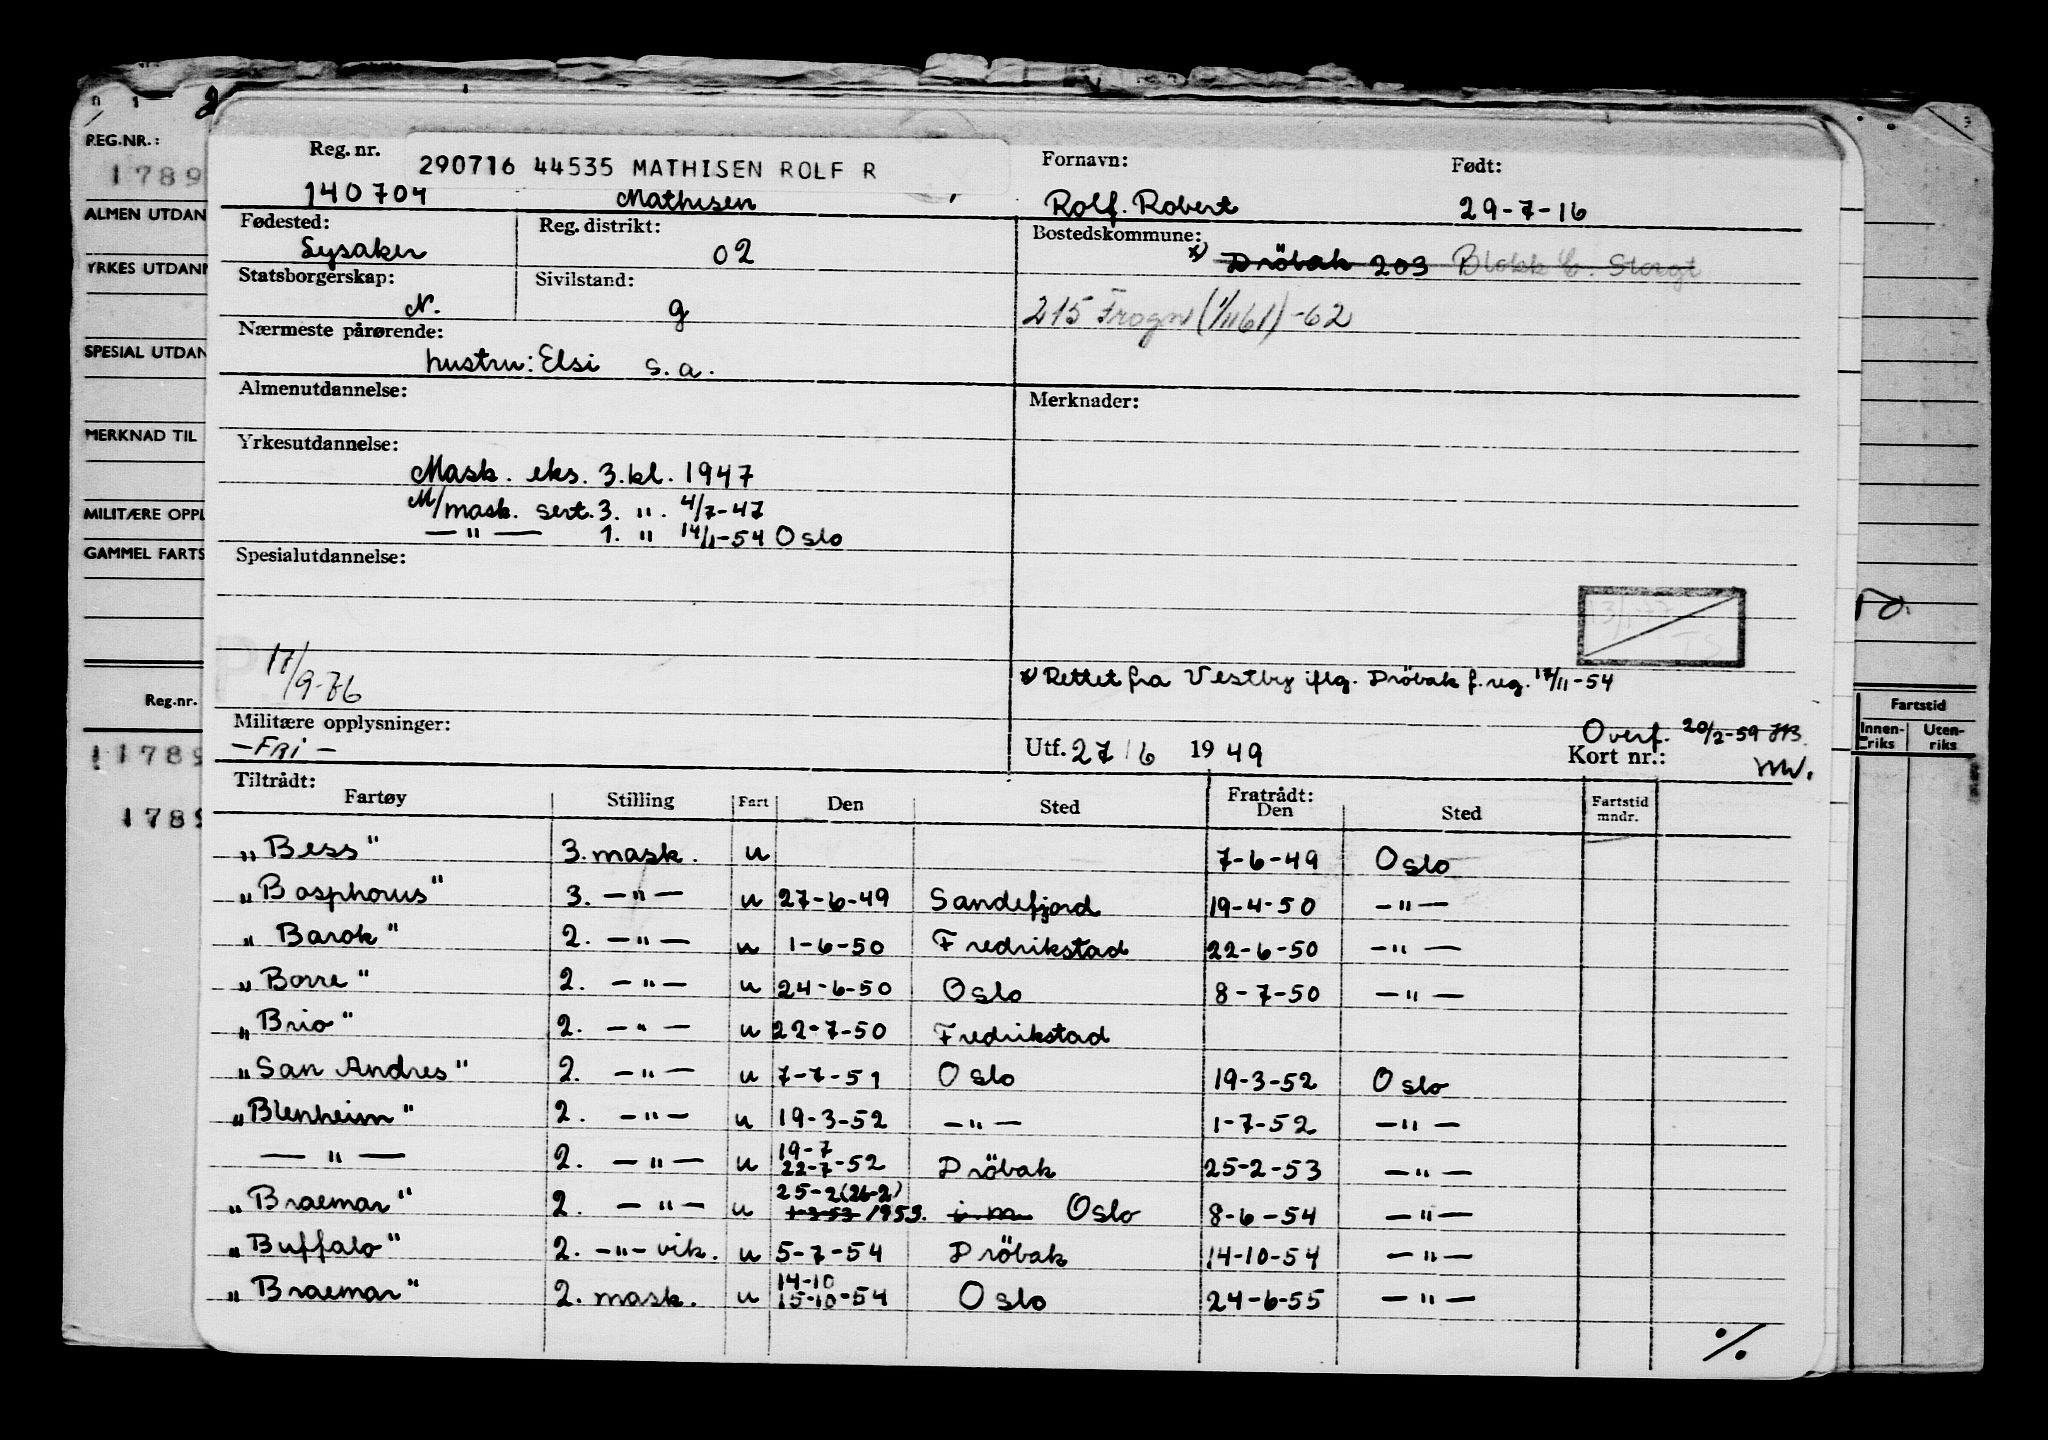 REG.NR.:
1789
ALMEN UTDAN
YRKES UTDANN
SPESIAL UTDAN
MERKNAD TIL
MILITÆRE OPPL
GAMMEL FARTS
Reg.nr.
11789
1789
Reg. nr. 290716 44535 MATHISEN ROLF R Fornavn: Født:
140704 Mathisen Rolf. Robert 29-7-16
Fødested: Reg. distrikt: Bostedskommune:
Lysaker 02 x) Dröbak 203 Blokk C. Storgt
Statsborgerskap: Sivilstand:
N. g 215 Frogn (1/11 61) -62
Nærmeste pårørende:
hustru: Elsi s.a.
Almenutdannelse: Merknader:
Yrkesutdannelse:
Mask. eks. 3. kl. 1947
M/mask. sert. 3. " . 4/7-47
— " — 1. " 14/1-54 Oslo
Spesialutdannelse:
13/1-77
TS
17/9-76
x) Rettet fra Vestby iflg. Dröbak f. reg. 17/11-54
Militære opplysninger: Overf. 20/2-59 HB.
— FRI — Utf. 27/6 1949 Kort nr.:
Fartstid
Innenriks Utenriks
Tiltrådt: Fratrådt:
Fartøy Stilling Fart Den Sted Den Sted Fartstid mndr.
"Bess" 3. mask. u 7-6-49 Oslo
"Bosphorus" 3. — " — u 27-6-49 Sandefjord 19-4-50 — " —
"Barok" 2. — " — u 1-6-50 Fredrikstad 22-6-50 — " —
"Borre" 2. — " — u 24-6-50 Oslo 8-7-50 — " —
"Brio" 2. — " — u 22-7-50 Fredrikstad
"San Andres" 2. — " — u 7-7-51 Oslo 19-3-52 Oslo
"Blenheim" 2. — " — u 19-3-52 — " — 1-7-52 — " —
— " — 2. — " — u 19-7 22-7-52 Dröbak 25-2-53 — " —
"Braemar" 2. — " — u 25-2 (26-2) 1-3-53 1953. i.m. Oslo 8-6-54 — " —
"Buffalo" 2. — " — vik. u 5-7-54 Dröbak 14-10-54 — " —
"Braemar" 2. mask. u 14-10 15-10-54 Oslo 24-6-55 — " —
./.